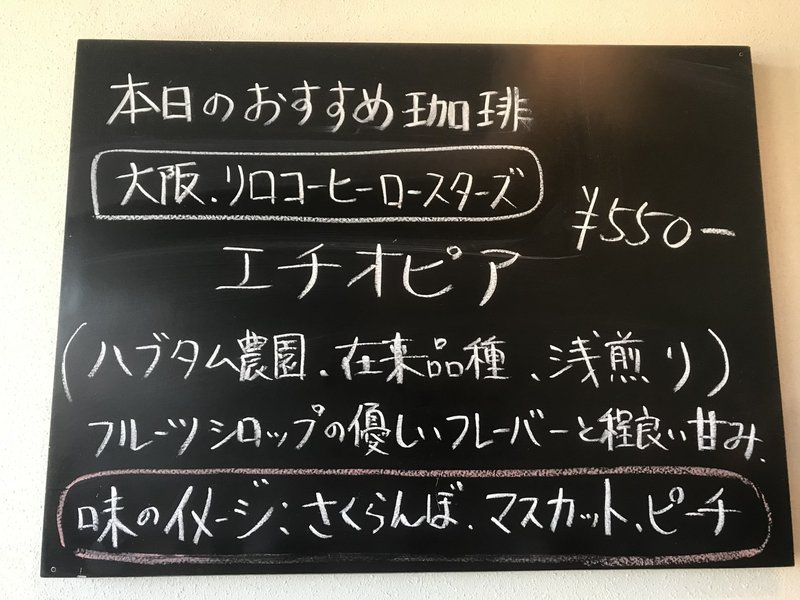 本日のおすすめ珈琲
大阪.リロコーヒーロースターズ
¥550-
エチオピア
(ハブタム農園、在来品種、浅煎り)
フルーツシロップの優しいフレーバーと程良い甘み.
味のイメージ:さくらんぼ、マスカット、ピーチ